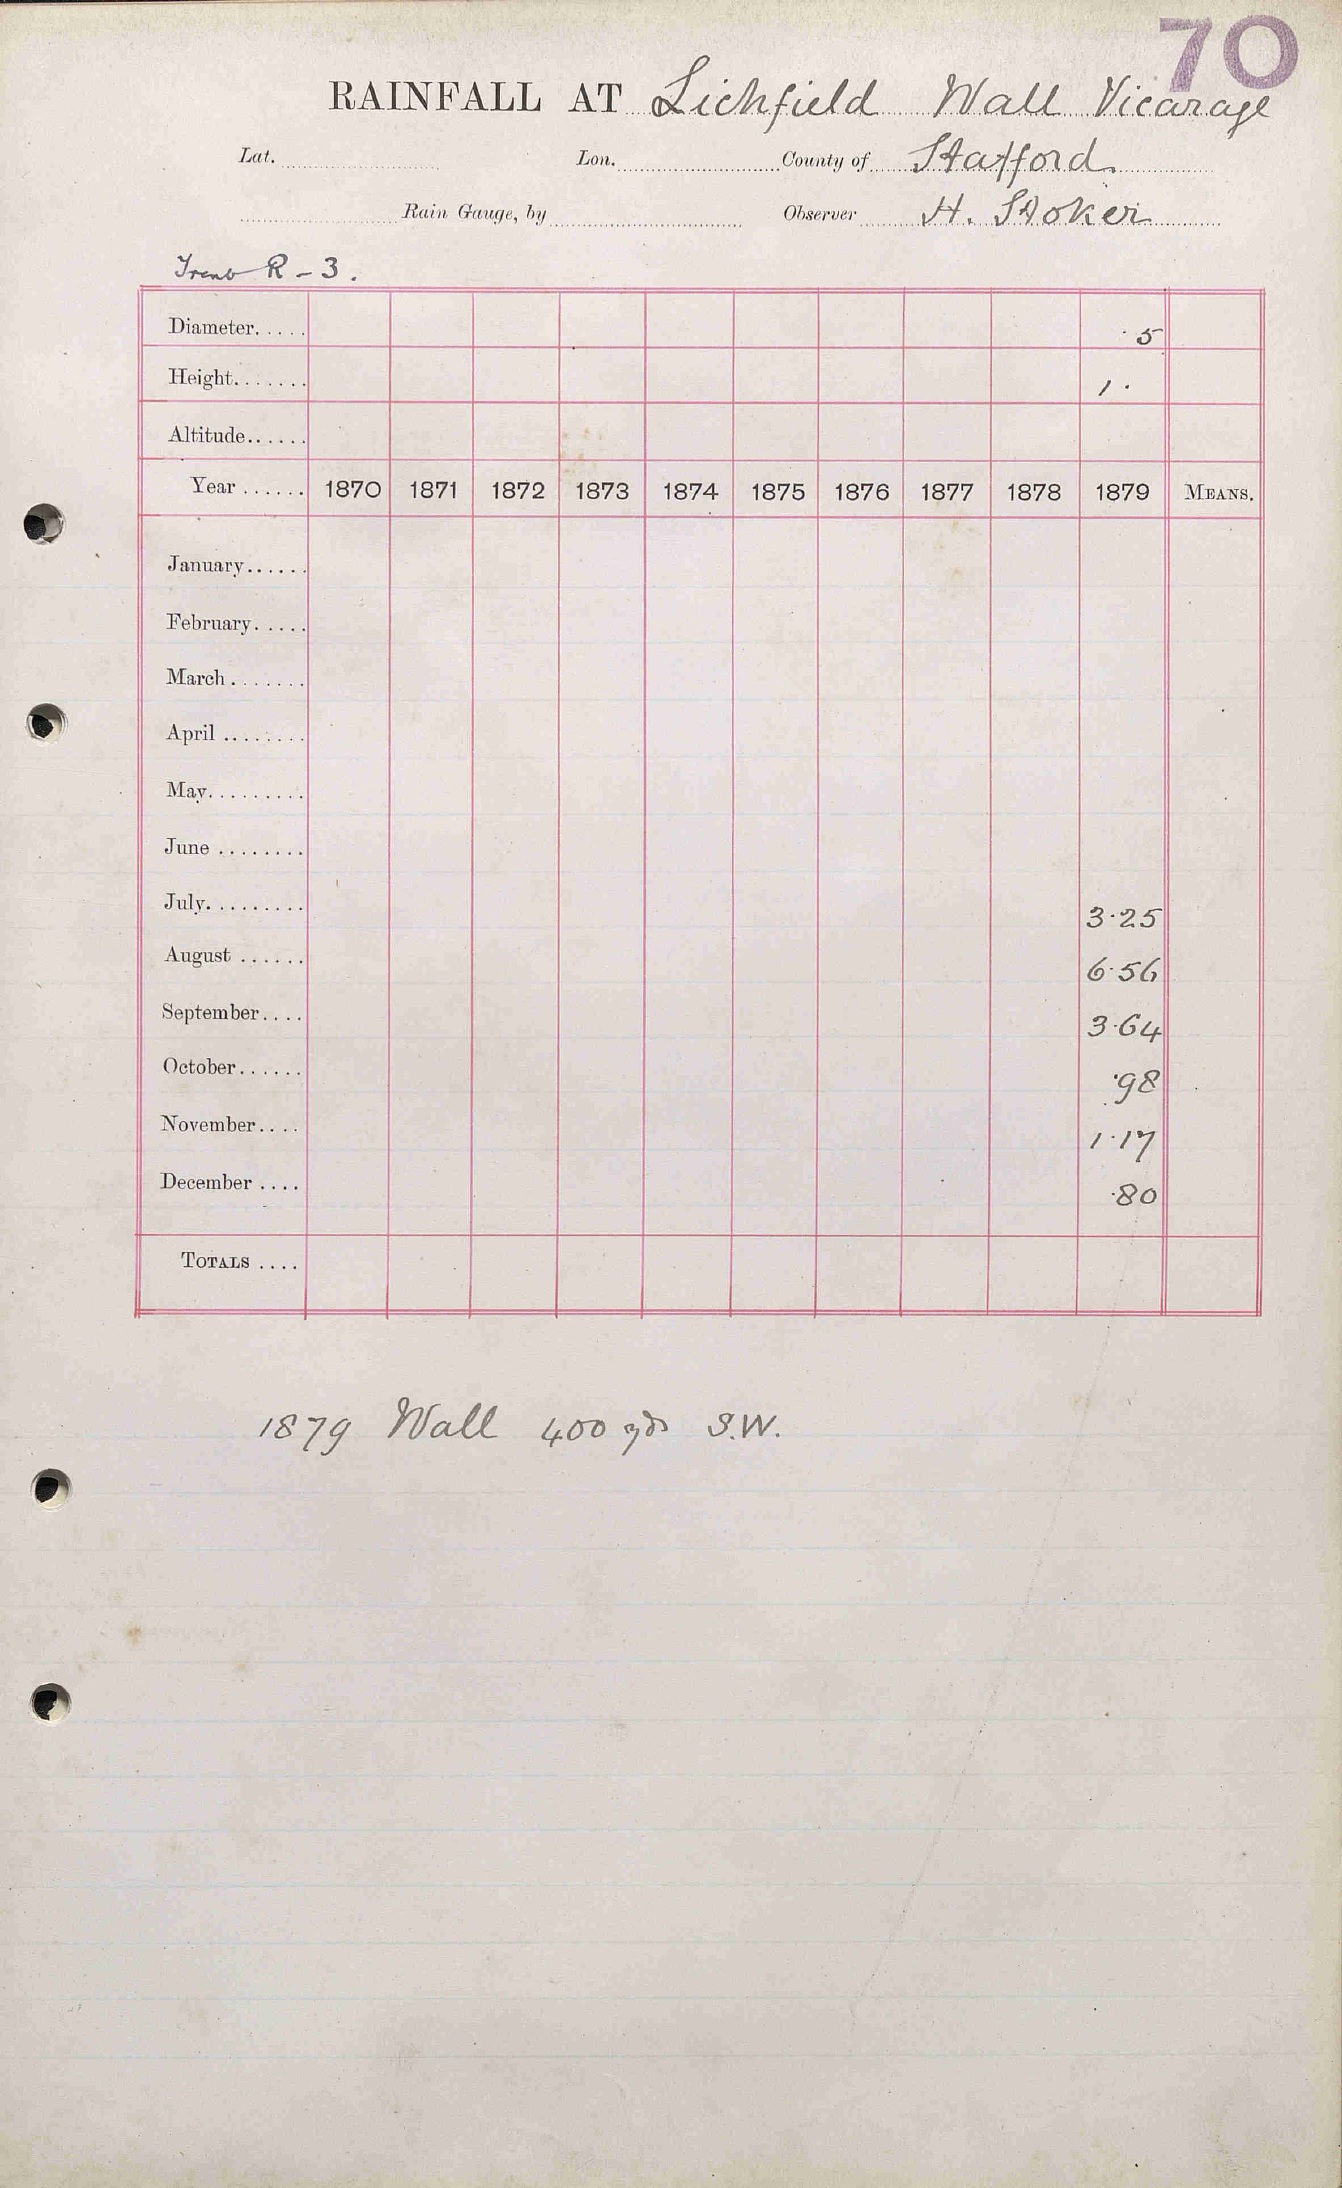 70
RAINFALL AT Lichfield Wall Vicarage
Lat. Lon. County of Stafford
Rain Gauge, by Observer H. Stoker
Trent R - 3.
Diameter..... ·5
Height....... 1·
Altitude......
Year ...... 1870 1871 1872 1873 1874 1875 1876 1877 1878 1879 MEANS.
January......
February.....
March.......
April ........
May.........
June ........
July......... 3·25
August ...... 6·56
September.... 3·64
October...... ·98
November.... 1·17
December .... ·80
TOTALS ....
1879 Wall 400 yds S.W.